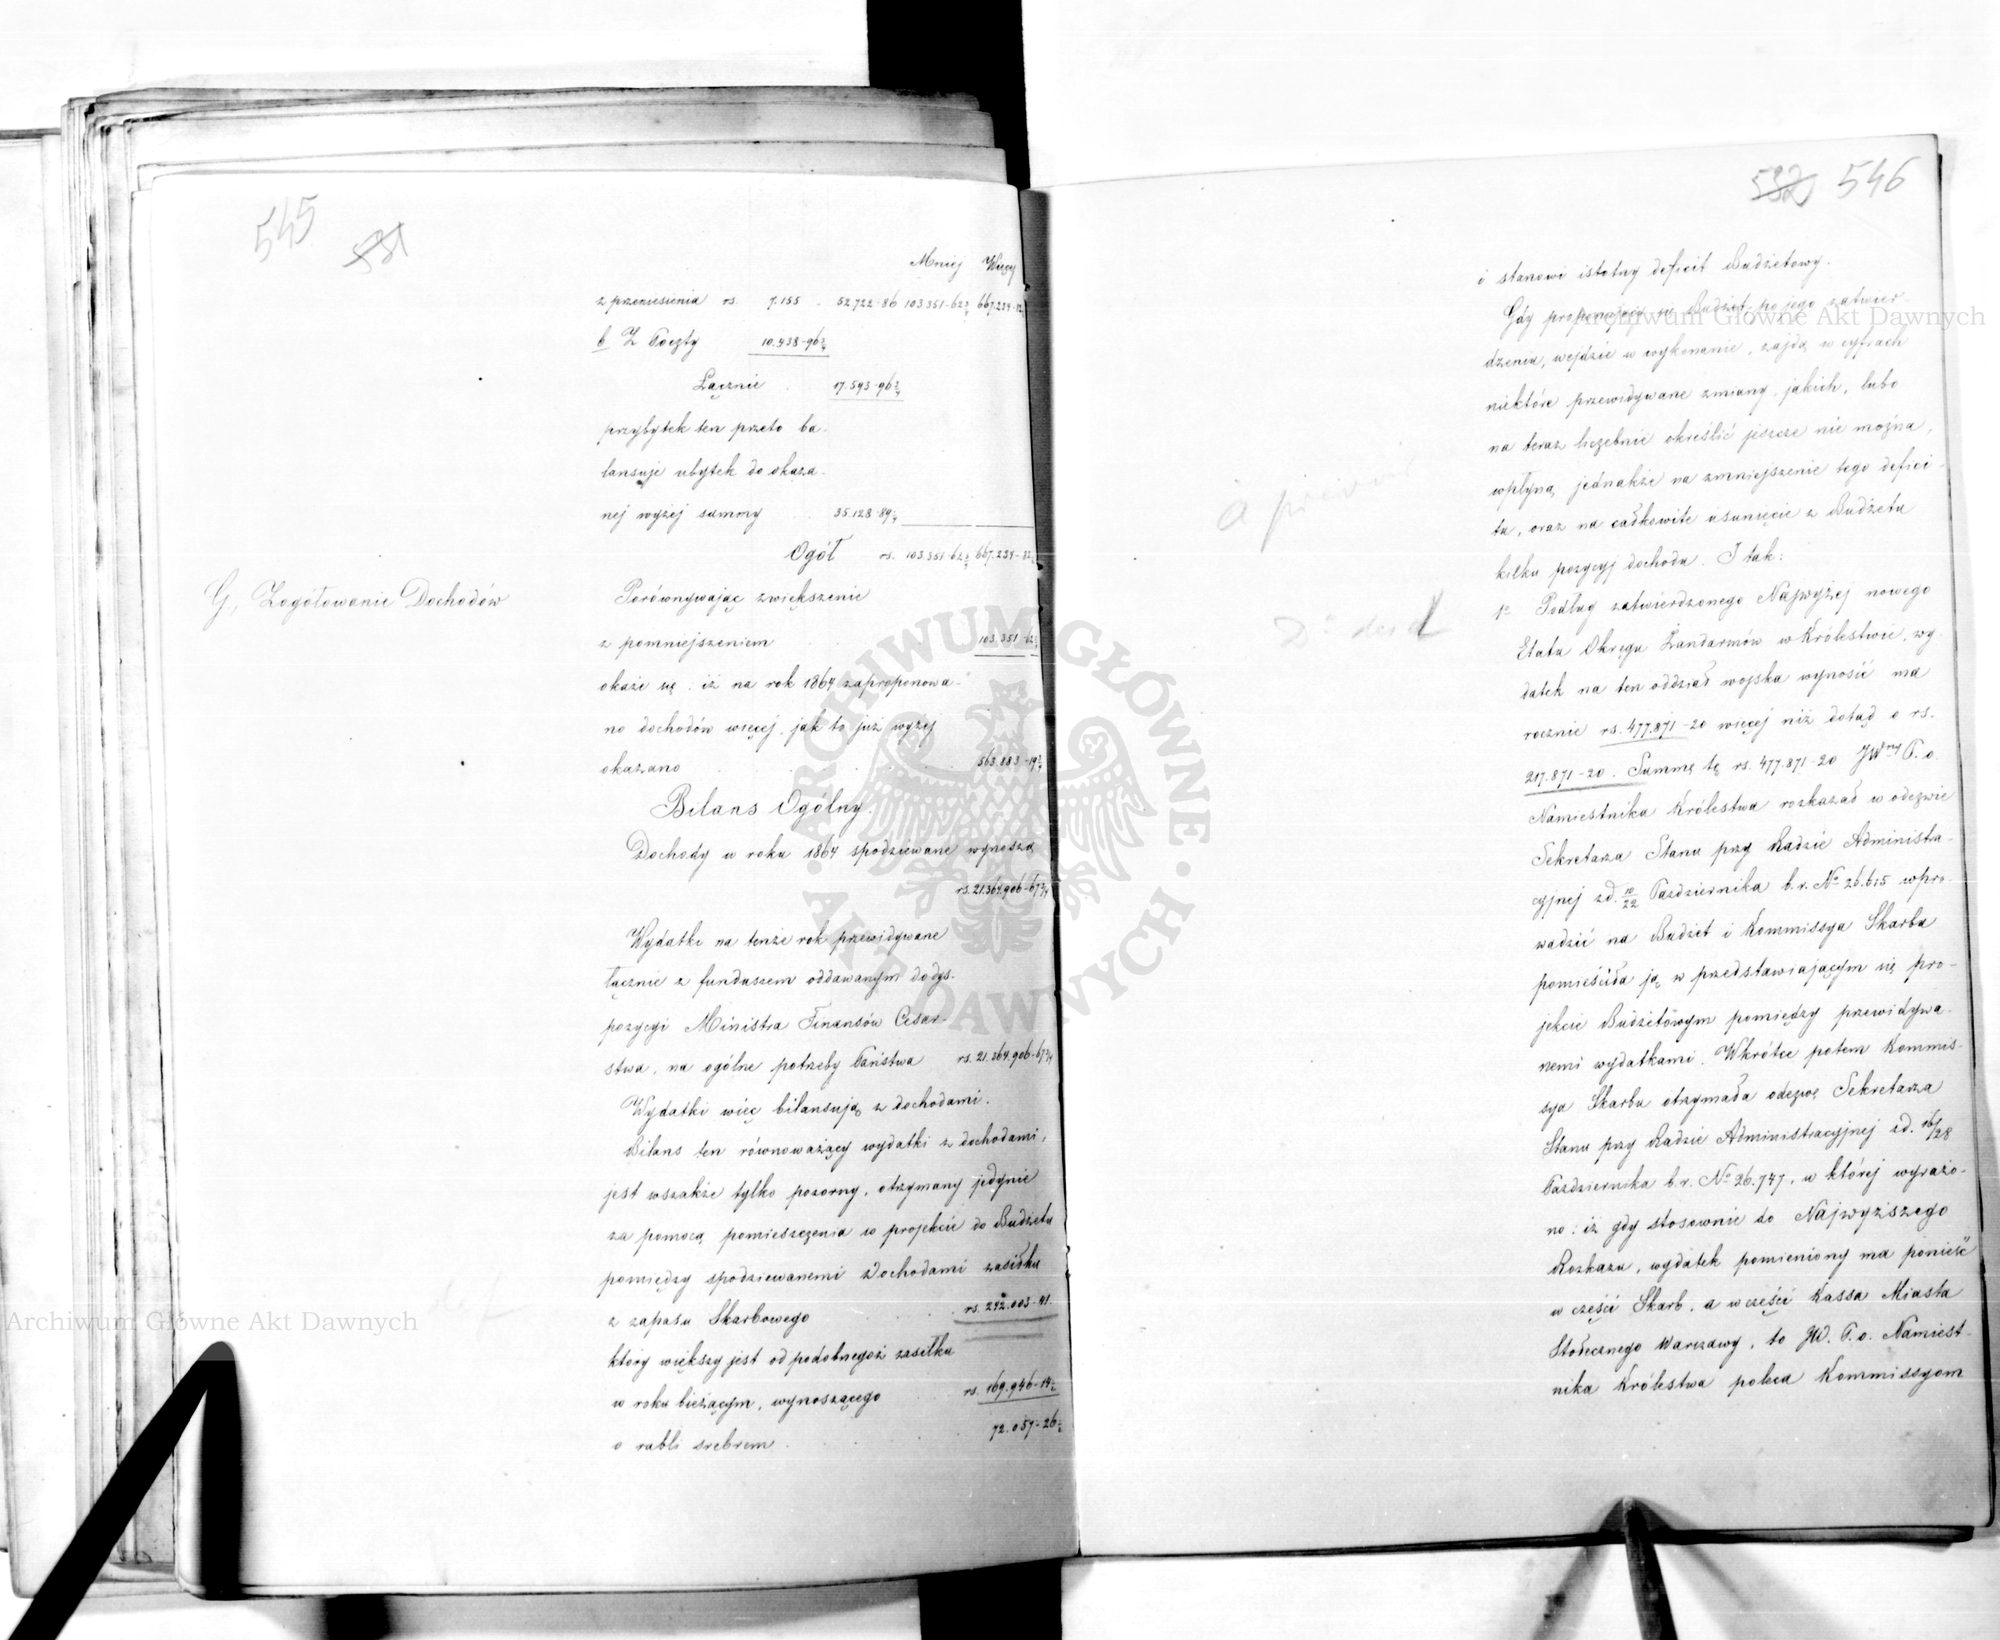 545
531
Mniej Więcy
z przeniesienia rs. 7.155 . 52.722-86 103.351-62¾ 667.234-82
b Z Poczty 10.438-96¾
Łącznie . 17.593-96¾
przybytek ten przeto ba-
lansuje ubytek do okaza-
nej wyżej summy 35.128-89¼
Ogół rs. 103.351-62¾ 667.234-82
G, Zogółowanie Dochodów
Porównywając zwiększenie
z pomniejszeniem 103.351-62¾
okaże się, iż na rok 1864 zaproponowa-
no dochodów więcej, jak to już wyżej
okazano 563.883-19¾
Bilans Ogólny.
Dochody w roku 1864 spodziewane wynoszą
rs. 21.364.906-67¾
Wydatki na tenże rok przewidywane
łącznie z funduszem oddawanym do dys-
pozycyi Ministra Finansów Cesar-
stwa, na ogólne potrzeby Państwa rs. 21.364.906-67¾
Wydatki więc bilansują z dochodami.
Bilans ten równoważący wydatki z dochodami,
jest wszakże tylko pozorny, otrzymany jedynie
za pomocą pomieszczenia w projekcie do Budżetu
pomiędzy spodziewanemi dochodami zasiłku
z zapasu Skarbowego rs. 242.003-41.
który większy jest od podobnegoż zasiłku
w roku bieżącym, wynoszącego rs. 169.946-14½
o rubli srebrem 72.057-26½
532 546
i stanowi istotny deficit Budżetowy.
Gdy proponujący się Budżet, po jego zatwier-
dzeniu, wejdzie w wykonanie, zajdą w cyfrach
niektóre przewidywane zmiany, jakich, lubo
na teraz liczebnie określić jeszcze nie można,
wpłyną jednakże na zmniejszenie tego defici-
tu, oraz na całkowite usunięcie z Budżetu
kilku pozycyj dochodu. I tak:
1º Podług zatwierdzonego Najwyżej nowego
Etatu Okręgu Żandarmów w Królestwie, wy-
datek na ten oddział wojska wynosić ma
rocznie rs. 477.871-20 więcej niż dotąd o rs.
217.871-20. Summę tę rs. 477.871-20 JWny P. o.
Namiestnika Królestwa rozkazał w odezwie
Sekretarza Stanu przy Radzie Administra-
cyjnej z d. 10/22 Października b.r. Nº 26.615 wpro-
wadzić na Budżet i Kommissya Skarbu
pomieściła ją w przedstawiającym się pro-
jekcie Budżetowym pomiędzy przewidywa-
nemi wydatkami. Wkrótce potem Kommis-
sya Skarbu otrzymała odezwę Sekretarza
Stanu przy Radzie Administracyjnej z d. 16/28
Października b.r. Nº 26.747, w której wyrażo-
no: iż gdy stosownie do Najwyższego
Rozkazu, wydatek pomieniony ma ponieść
w części Skarb, a w części Kassa Miasta
Stołecznego Warszawy, to JW. P. o. Namiest-
nika Królestwa poleca Kommissyom
Archiwum Główne Akt Dawnych
Archiwum Główne Akt Dawnych
ARCHIWUM GŁÓWNE AKT DAWNYCH